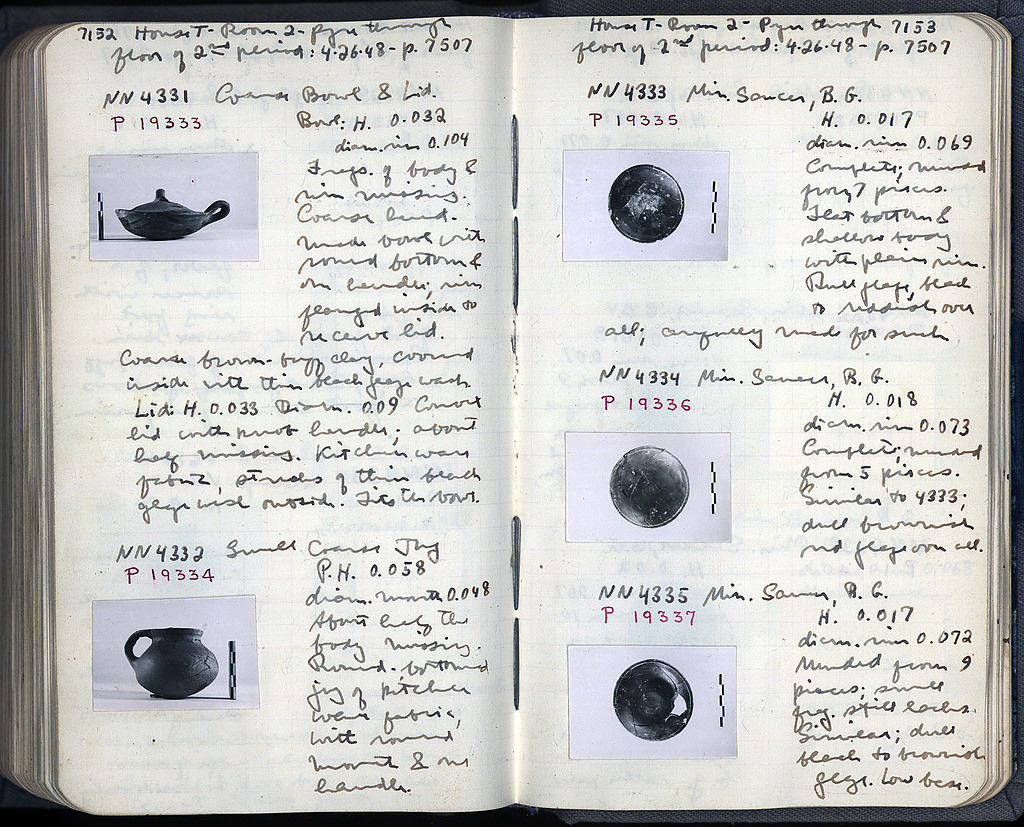 7152 House T - Room 2 - Pyre through
floor of 2nd period: 4·26·48 - p. 7507
NN 4331 Coarse Bowl & Lid.
P 19333
Bowl: H. 0.032
diam. rim 0.104
Frags. of body &
rim missing.
Coarse hand-
made bowl with
round bottom &
one handle; rim
flanged inside to
receive lid.
Coarse brown-buff clay, covered
inside with thin black glaze wash.
Lid: H. 0.033 Diam. 0.09 Convex
lid with knob handle; about
half missing. Kitchen ware
fabric, streaks of thin black
glaze wash outside. Fits the bowl.
NN 4332 Small Coarse Jug
P 19334
P.H. 0.058
diam. mouth 0.048
About half the
body missing.
Round-bottomed
jug of kitchen
ware fabric,
with round
mouth & one
handle.
House T - Room 2 - Pyre through 7153
floor of 2nd period: 4·26·48 - p. 7507
NN 4333 Min. Saucer, B.G.
P 19335
H. 0.017
diam. rim 0.069
Complete; mended
from 7 pieces.
Flat bottom &
shallow body
with plain rim.
Dull glaze, black
to reddish over
all; unevenly
NN 4334 Min. Saucer, B.G.
P 19336
H. 0.018
diam. rim 0.073
Complete; mended
from 5 pieces.
Similar to 4333;
dull brownish
red glaze over all.
NN 4335 Min. Saucer, B.G.
P 19337
H. 0.017
diam. rim 0.072
Mended from 9
pieces; small
frag. still lacks.
Similar; dull
black to brownish
glaze. Low base.